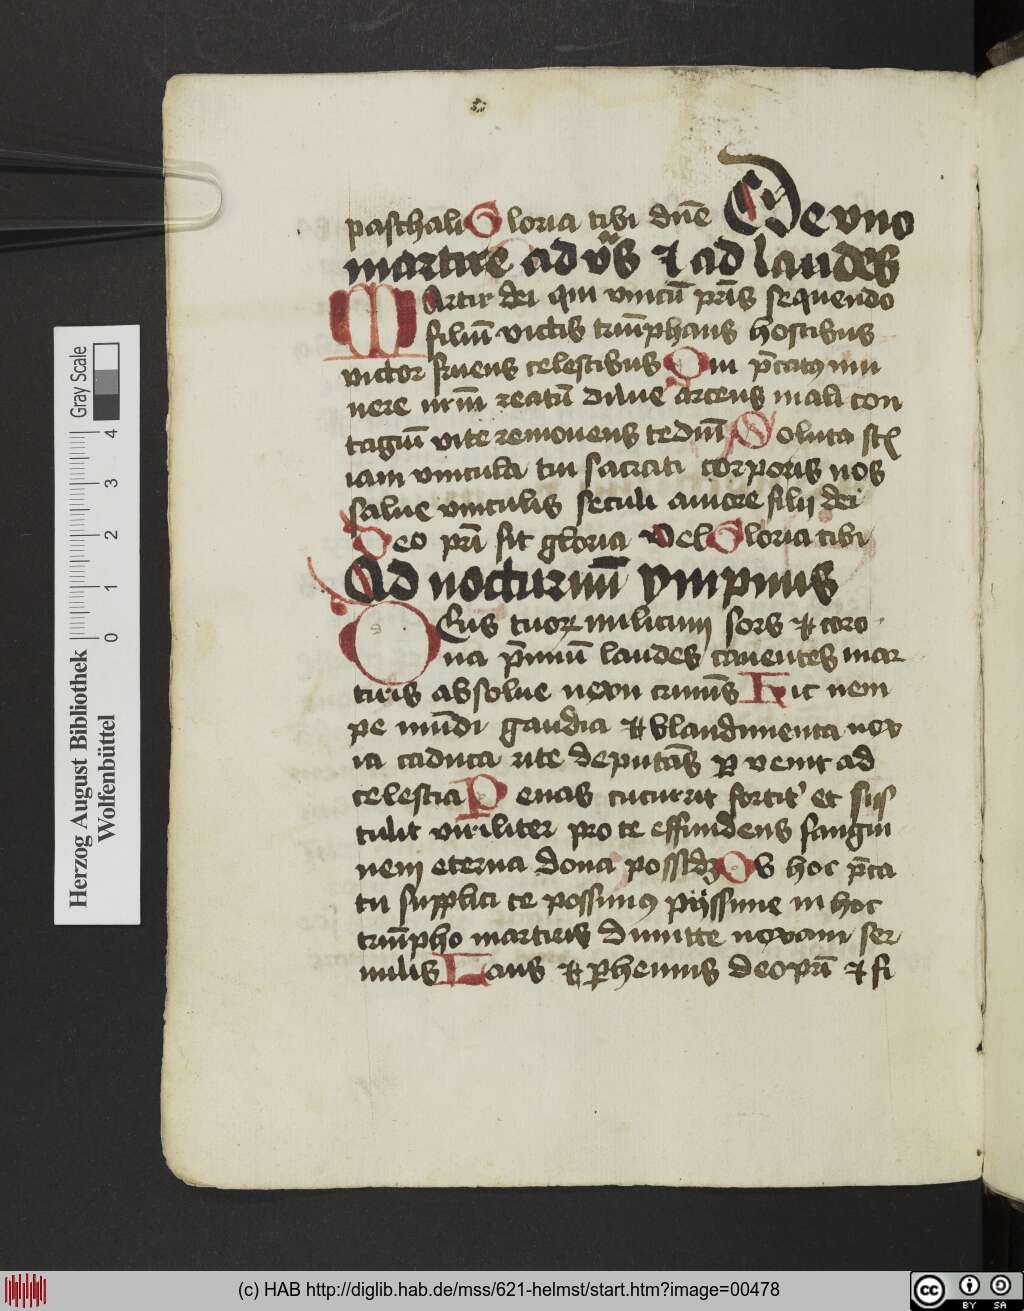 paschali Gloria tibi dn̄e De vno
martire ad vr̄s et ad laudes
Martir dei qui vnicū pr̄is sequendo
filiū victis triūphans hostibus
victor fruens celestibus Qui p̄catꝯ mu
nere nr̄m reatū dilue arcens mali con
tagiū vite remouens tediū Soluta st̄
iam vincula tui sacrati corporis nos
salue vinculis seculi amore filij dei
Deo pr̄i sit gloria vel Gloria tibi
Ad nocturnū ympnus
Deus tuoꝝ militum sors et coro
na p̄miū laudes canentes mar
tiris absolue nexu crimīs Hic nem
pe mūdi gaudia et blandimenta nox
ia caduca rite deputās peruenit ad
celestia Penas cucurrit fortit᷑ et sus
tulit viriliter pro te effundens sangui
nem eterna dona possidꝫ Ob hoc p̄ca
tu supplici te possimꝯ pijssime in hoc
triūpho martiris dimitte noxam ser
uulis Laus et perhennis deo pr̄i et fi
Herzog August Bibliothek
Wolfenbüttel
0 1 2 3 4
Gray Scale
(c) HAB http://diglib.hab.de/mss/621-helmst/start.htm?image=00478
cc BY SA